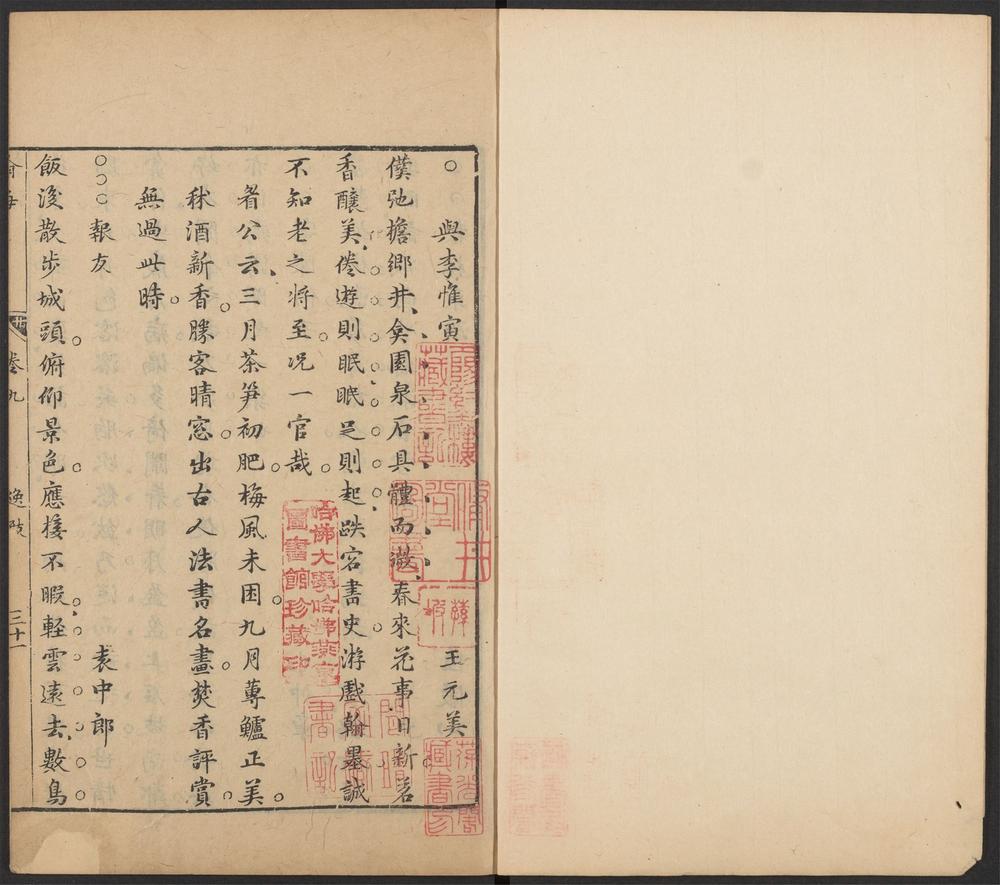 與李惟寅 王元美
僕弛擔鄉井弇園泉石具體而微春來花事日新茗
香釀美倦遊則眠眠足則起跌宕書史游戲翰墨誠
不知老之將至况一官哉
者公云三月茶笋初肥梅風未困九月蓴鱸正美
秫酒新香勝客晴窓出古人法書名畫焚香評賞
無過此時
報友 袁中郎
飯後散步城頭俯仰景色應接不暇軽雲遠去數鳥
卷九 逸致 三十一
哈佛大學哈佛燕京
圖書館珍藏印